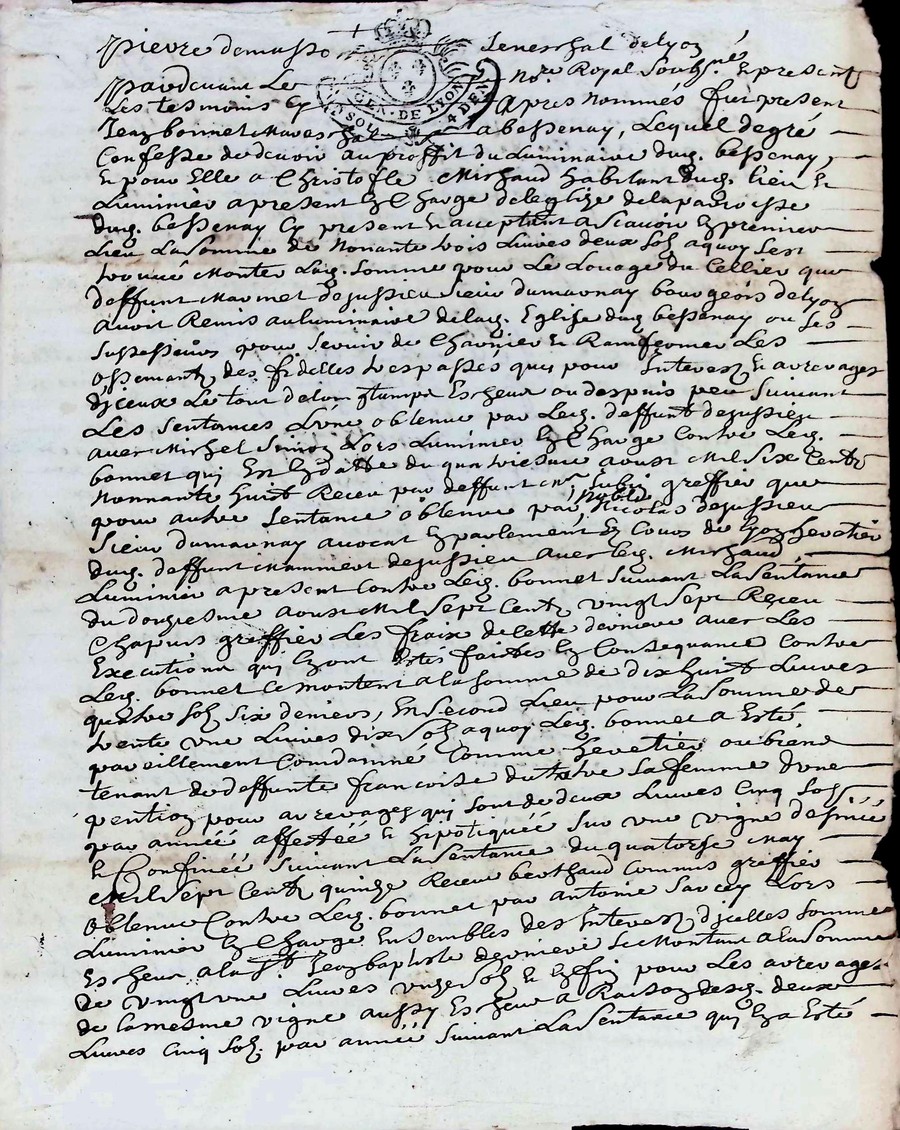 pierre demasso Seneschal de Lyon
Pardevant Le Nore Royal Soubsné Et present
GEN. DE LYON 4 DEN
Les tesmoins Cy apres nommés fut present
Jean bonnet Mareschal a bessenay, Lequel de gré
Confesse de devoir au proffit du Luminaire dud. bessenay,
Et pour Elle a Christofle Michaud habitant dud. lieu Et
Luminier a present En Charge de leglize de la parroisse
dud. bessenay Cy present Et acceptant a Scavoir En premier
Lieu La Somme de Nonante trois Livres deux Solz a quoy Sest
trouvé Monter Lad. Somme pour Le Louage du Cellier que
deffunt Mammet dejussieu Sieur dumarnay bourgeois de Lyon
avoit Remis au luminaire de lad. Eglise dud bessenay ou Ses
Sussesseurs pour Servir de Charnier Et Ramfermer Les
ossemantz des fidelles trespassés que pour Interestz Et arrerages
diceux Le tout de lontz tempz Escheux ou despuis peu Suivant
Les Sentances Lune obtenue par Led. deffunt dejussieu
avec Michel Simon Lors Luminier En Charge Contre Led.
bonnet qui Est En datte du quatriesme aoust Mil Six Centz
Nonnante huit Receu par deffunt Mr greffier que
pour autre Sentance obtenue par Noble Nicolas dejussieu
Sieur dumarnay avocat En parlement Et Cours de Lyon hevetier
dud. deffunt Mamment dejussieu avec led. Michaud
Luminier a present Contre Led. bonnet Suivant La Sentance
du douziesme aoust Mil Sept Centz vingt Sept Receu
Chapuis greffier Les fraix de Cette derniere avec Les
Executions qui En ont Estés faittes En Consequance Contre
Led. bonnet Ce montent a la Somme de dix huit Livres
quatre Solz Six deniers, En Second Lieu pour La Somme de
trente une Livres dix Solz a quoy Led. bonnet a Esté
pareillement Condamné Comme hevetier ou biens
tenant de deffunte francoise dutreve Sa femme dune
pention pour arrerages qui Sont de deux Livres Cinq Solz
par année affectéé Et hipotiquéé Sur une vigne desinéé
Et Confinéé Suivant La Sentance du quatorze May
Mil Sept Centz quinze Receu berthaud Commis greffier
obtenue Contre Led. bonnet par antoine Sarcey Lors
Luminier En Charge Ensembles des Interestz dicelles Sommes
Escheux a la St Jean baptiste derniere Se Montant a la Somme
de vingt une Livres unze Solz Et Enfin pour Les arrerages
de la mesme vigne aussy Escheux a Raison desd. deux
Livres Cinq Solz par année Suivant La Sentance qui En a Esté